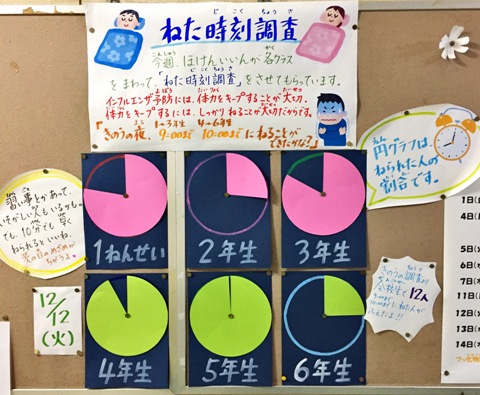 ねた時刻調査
じこくちょうさ
今週、ほけんいいんが各クラス
をまわって、「ねた時刻調査」をさせてもらっています。
インフルエンザ予防には、体力をキープすることが大切。
体力をキープするには、しっかりねることが大切だからです。
1~3年生 4~6年生
「きのうの夜、9:00まで 10:00までにねることが
できたかな?」
円グラフは、
ねられた人の
割合です。
習い事とかあって、
いそがしい人もいるかも。
でも、10分でも早く
ねられるといいね。
次の日のめざめが
ちがうよ。
1ねんせい
2年生
3年生
12/12
(火)
4年生
5年生
6年生
きのうの調査より
全校生で12人
1日
5日
6日
7日
11日
12日
13日
14日